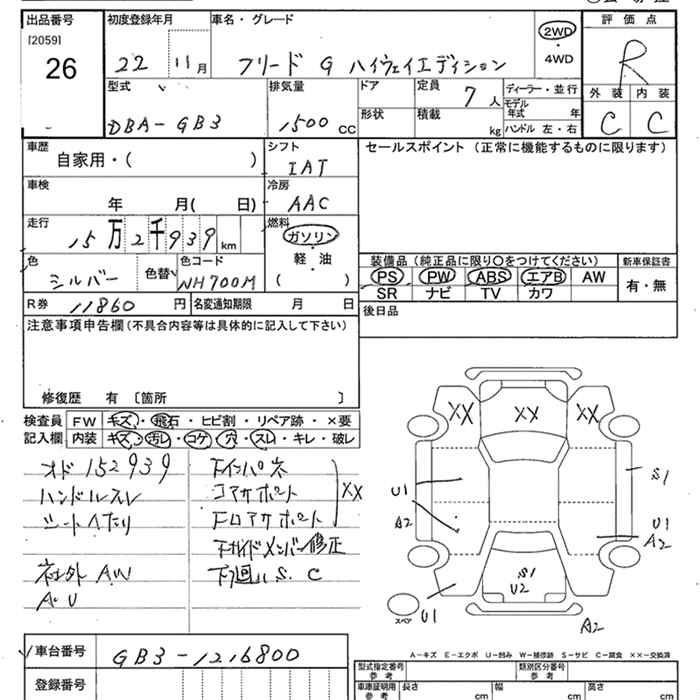 出品番号 初度登録年月 車名・グレード 評価点
[2059]
26
22 11月 フリード G ハイウェイエディション 2WD・4WD R
型式 排気量 ドア 定員 7人 ディーラー・並行 外装 内装
DBA-GB3 1500 CC 形状 積載 kg モデル年式 年 ハンドル 左・右 C C
車歴 シフト セールスポイント (正常に機能するものに限ります)
自家用・( ) IAT
車検 冷房
年 月( 日) AAC
走行 燃料
15万2千939km ガソリン
色 色替 色コード 軽・油
シルバー NH700M ( )
装備品 (純正品に限り〇をつけてください) 新車保証書
PS PW ABS エアB AW 有・無
SR ナビ TV カワ
R券 11860円 名変通知期限 月 日 後日品
注意事項申告欄 (不具合内容等は具体的に記入して下さい)
修復歴 有 〔箇所 〕
検査員 FW キズ・飛石・ヒビ割・リペア跡・×要
記入欄 内装 キズ・汚レ・コゲ・穴・スレ・キレ・破レ
オド152939
ハンドルスレ
シートヘたり
社外AW
A・U
コアサポート
FロアサポートXX
下廻りS.C
XX XX XX
U1 S1
A2 U1
A2
S1
U2
U1 A2
スペア
A-キズ E-エクボ U-凹み W-補修跡 S-サビ C-腐食 ××-交換済
車台番号 GB3-1216800
登録番号
型式指定番号 参考 類別区分番号 参考
車庫証明用 参考 長さ cm 幅 cm 高さ cm